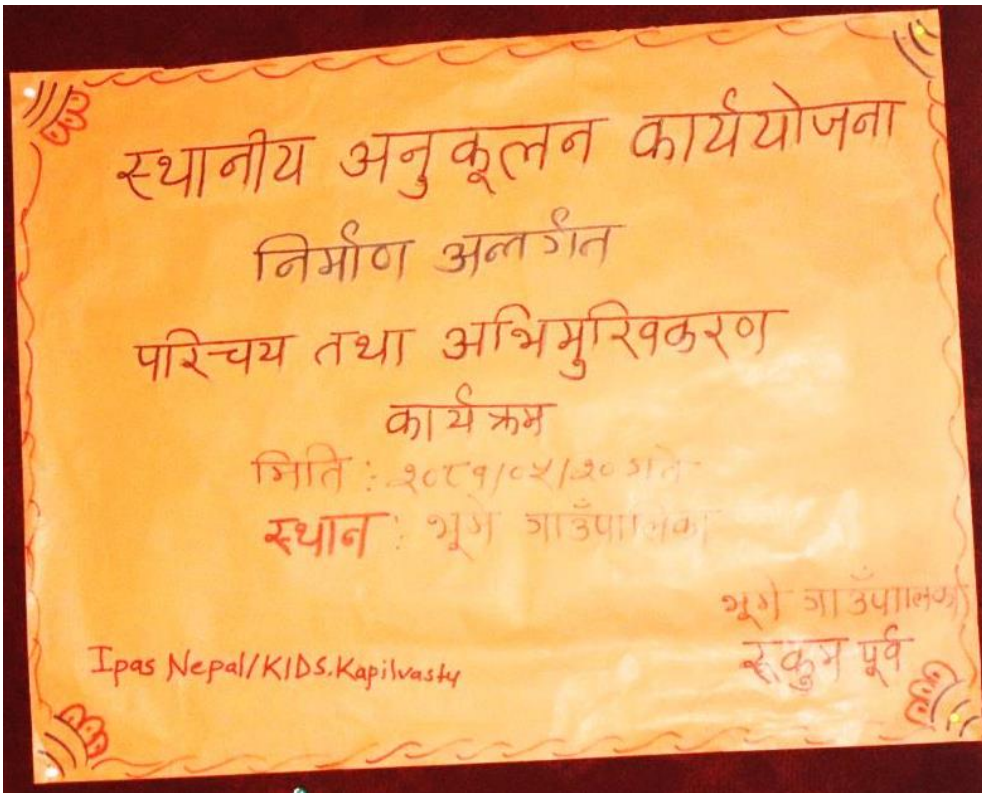 स्थानीय अनुकूलन कार्ययोजना
निर्माण अन्तर्गत
परिचय तथा अभिमुखिकरण
कार्यक्रम
मिति : २०८१/०५/२० गते
स्थान : भूमे गाउँपालिका
भूमे गाउँपालिका
रुकुम पूर्व
Ipas Nepal/KIDS, Kapilvastu